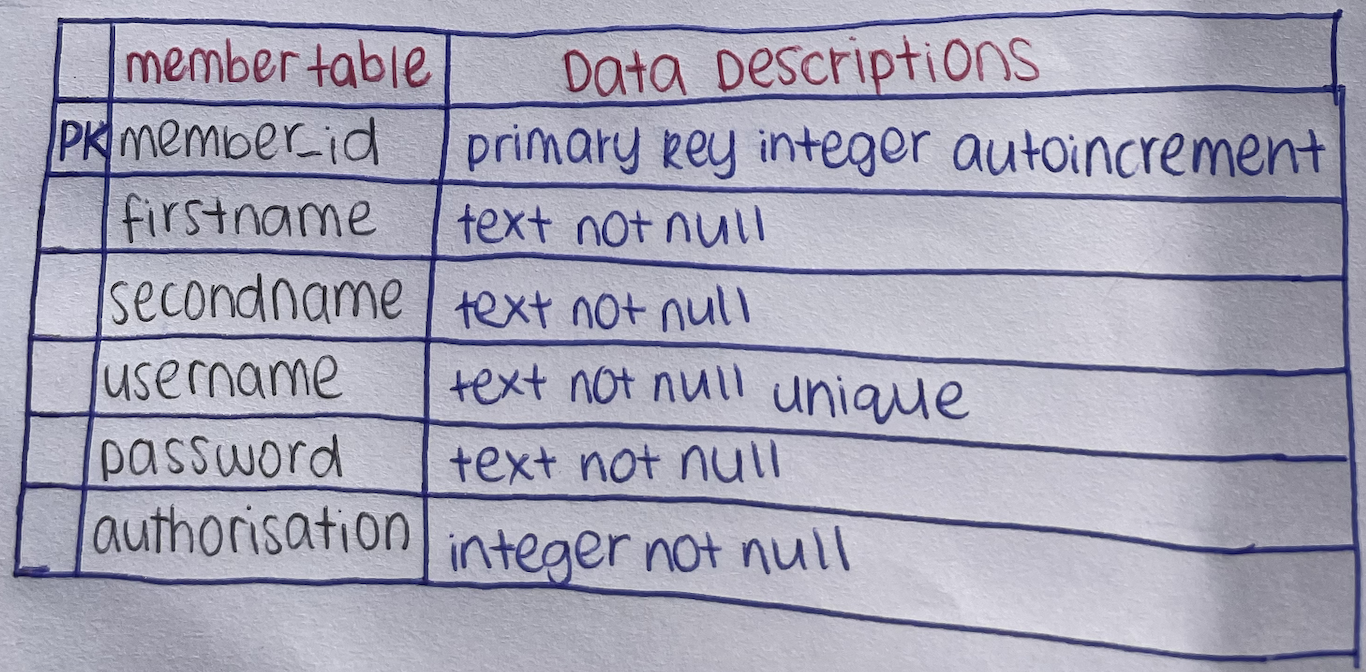 member table Data Descriptions
PK member_id primary key integer autoincrement
firstname text not null
secondname text not null
username text not null unique
password text not null
authorisation integer not null